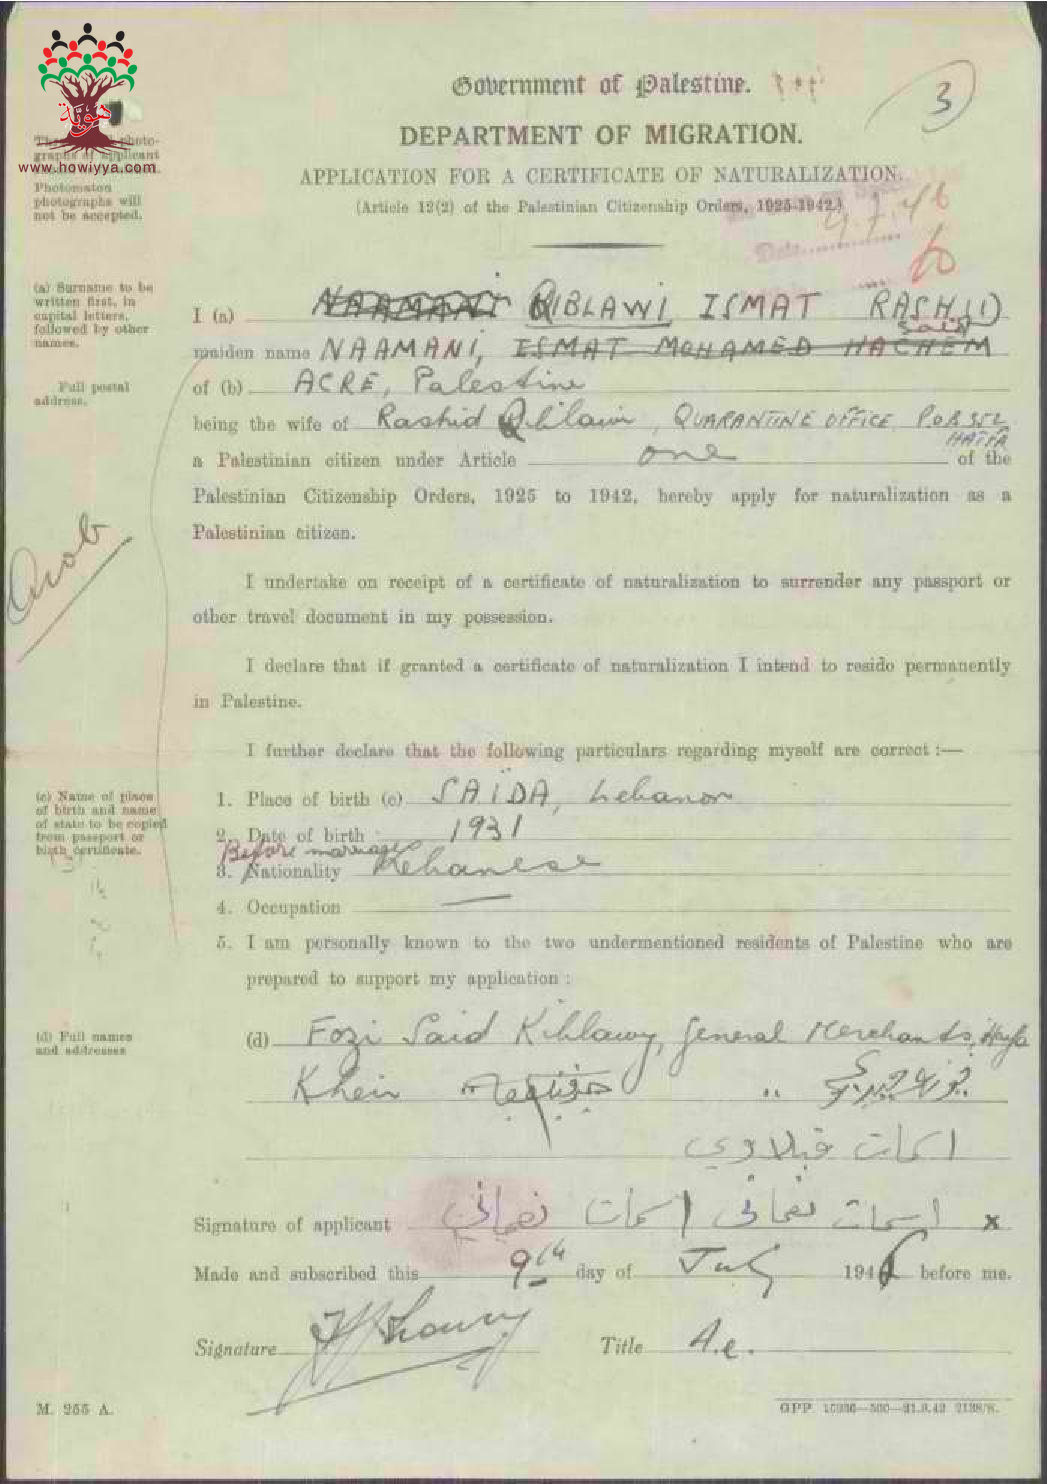 Government of Palestine.
3
DEPARTMENT OF MIGRATION.
APPLICATION FOR A CERTIFICATE OF NATURALIZATION.
(Article 12(2) of the Palestinian Citizenship Orders, 1925-1942.)
Date
9.7.46
هوية
www.howiyya.com
photo-
graphs of applicant
Photomaton
photographs will
not be accepted.
(a) Surname to be
written first, in
capital letters,
followed by other
names.
I (a) NAAMANI QIBLAWI, ISMAT RASHID
said
maiden name NAAMANI, ISMAT MOHAMED HACHEM
Full postal
address.
of (b) ACRE, Palestine
being the wife of Rashid Qiblawi, QUARANTINE OFFICE P.O.B 552
HAIFA
a Palestinian citizen under Article one of the
Palestinian Citizenship Orders, 1925 to 1942, hereby apply for naturalization as a
Palestinian citizen.
Arab
I undertake on receipt of a certificate of naturalization to surrender any passport or
other travel document in my possession.
I declare that if granted a certificate of naturalization I intend to reside permanently
in Palestine.
I further declare that the following particulars regarding myself are correct :—
(c) Name of place
of birth and name
of state to be copied
from passport or
birth certificate.
1. Place of birth (c) SAÏDA, Lebanon
2. Date of birth : 1931
Before marriage
3. Nationality Lebanese
4. Occupation —
5. I am personally known to the two undermentioned residents of Palestine who are
prepared to support my application :
(d) Full names
and addresses
(d) Fozi Said Kiblawy, General Merchants, Hayfa
Kheir "
اسمات قبلاوي
Signature of applicant اسمات نعماني اسمات نعماني x
Made and subscribed this 9th day of July 1946 before me.
Signature Title A.C.
M. 255 A.
GPP. 10936—500—31.8.42 2138/S.